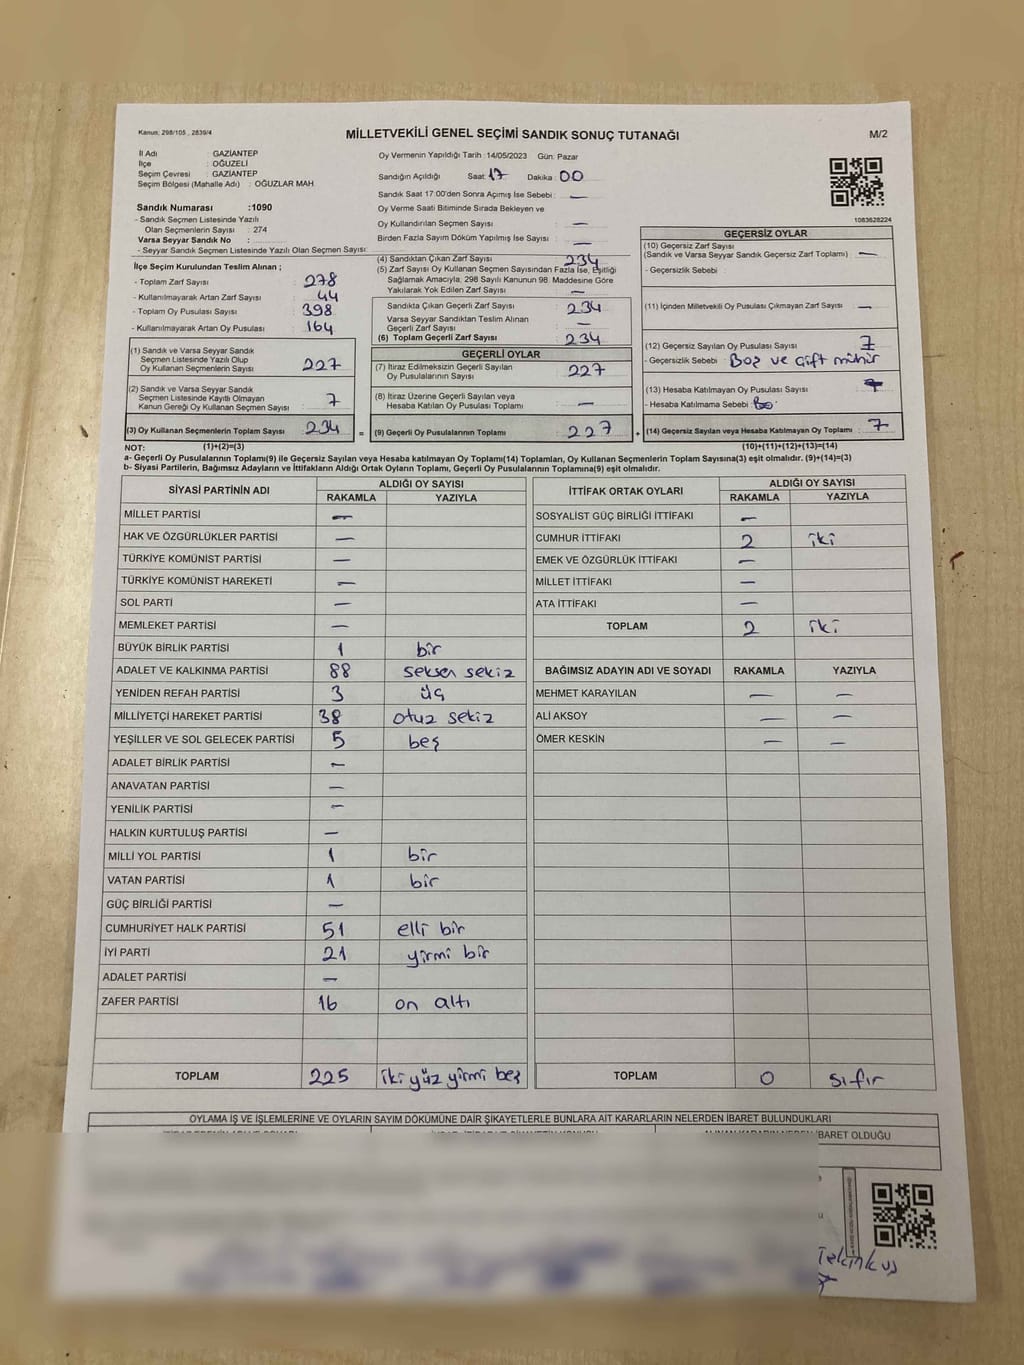 Kanun; 298/105 , 2839/4
MİLLETVEKİLİ GENEL SEÇİMİ SANDIK SONUÇ TUTANAĞI
M/2
İl Adı : GAZİANTEP
İlçe : OĞUZELİ
Seçim Çevresi : GAZİANTEP
Seçim Bölgesi (Mahalle Adı) : OĞUZLAR MAH
Sandık Numarası :1090
- Sandık Seçmen Listesinde Yazılı
Olan Seçmenlerin Sayısı : 274
Varsa Seyyar Sandık No :
- Seyyar Sandık Seçmen Listesinde Yazılı Olan Seçmen Sayısı:
Oy Vermenin Yapıldığı Tarih :14/05/2023 Gün: Pazar
Sandığın Açıldığı Saat: 17 Dakika : 00
Sandık Saat 17:00'den Sonra Açımış İse Sebebi : —
Oy Verme Saati Bitiminde Sırada Bekleyen ve
Oy Kullandırılan Seçmen Sayısı : —
Birden Fazla Sayım Döküm Yapılmış İse Sayısı : —
1083628224
İlçe Seçim Kurulundan Teslim Alınan ;
- Toplam Zarf Sayısı : 278
- Kullanılmayarak Artan Zarf Sayısı : 44
- Toplam Oy Pusulası Sayısı : 398
- Kullanılmayarak Artan Oy Pusulası : 164
(1) Sandık ve Varsa Seyyar Sandık
Seçmen Listesinde Yazılı Olup
Oy Kullanan Seçmenlerin Sayısı : 227
(2) Sandık ve Varsa Seyyar Sandık
Seçmen Listesinde Kayıtlı Olmayan
Kanun Gereği Oy Kullanan Seçmen Sayısı : 7
(3) Oy Kullanan Seçmenlerin Toplam Sayısı : 234
(4) Sandıktan Çıkan Zarf Sayısı : 234
(5) Zarf Sayısı Oy Kullanan Seçmen Sayısından Fazla İse, Eşitliği
Sağlamak Amacıyla, 298 Sayılı Kanunun 98. Maddesine Göre
Yakılarak Yok Edilen Zarf Sayısı : —
Sandıkta Çıkan Geçerli Zarf Sayısı : 234
Varsa Seyyar Sandıktan Teslim Alınan
Geçerli Zarf Sayısı : —
(6) Toplam Geçerli Zarf Sayısı : 234
GEÇERLİ OYLAR
(7) İtiraz Edilmeksizin Geçerli Sayılan
Oy Pusulalarının Sayısı : 227
(8) İtiraz Üzerine Geçerli Sayılan veya
Hesaba Katılan Oy Pusulası Toplamı : —
= (9) Geçerli Oy Pusulalarının Toplamı : 227
GEÇERSİZ OYLAR
(10) Geçersiz Zarf Sayısı
(Sandık ve Varsa Seyyar Sandık Geçersiz Zarf Toplamı) : —
- Geçersizlik Sebebi :
(11) İçinden Milletvekili Oy Pusulası Çıkmayan Zarf Sayısı : —
(12) Geçersiz Sayılan Oy Pusulası Sayısı : 7
- Geçersizlik Sebebi : Boş ve Çift mühür
(13) Hesaba Katılmayan Oy Pusulası Sayısı :
- Hesaba Katılmama Sebebi :
+ (14) Geçersiz Sayılan veya Hesaba Katılmayan Oy Toplamı : 7
NOT: (1)+(2)=(3) (10)+(11)+(12)+(13)=(14)
a- Geçerli Oy Pusulalarının Toplamı(9) ile Geçersiz Sayılan veya Hesaba katılmayan Oy Toplamı(14) Toplamları, Oy Kullanan Seçmenlerin Toplam Sayısına(3) eşit olmalıdır. (9)+(14)=(3)
b- Siyasi Partilerin, Bağımsız Adayların ve İttifakların Aldığı Ortak Oyların Toplamı, Geçerli Oy Pusulalarının Toplamına(9) eşit olmalıdır.
SİYASİ PARTİNİN ADI ALDIĞI OY SAYISI
RAKAMLA YAZIYLA
MİLLET PARTİSİ —
HAK VE ÖZGÜRLÜKLER PARTİSİ —
TÜRKİYE KOMÜNİST PARTİSİ —
TÜRKİYE KOMÜNİST HAREKETİ —
SOL PARTİ —
MEMLEKET PARTİSİ —
BÜYÜK BİRLİK PARTİSİ 1 bir
ADALET VE KALKINMA PARTİSİ 88 seksen sekiz
YENİDEN REFAH PARTİSİ 3 üç
MİLLİYETÇİ HAREKET PARTİSİ 38 otuz sekiz
YEŞİLLER VE SOL GELECEK PARTİSİ 5 beş
ADALET BİRLİK PARTİSİ —
ANAVATAN PARTİSİ —
YENİLİK PARTİSİ —
HALKIN KURTULUŞ PARTİSİ —
MİLLİ YOL PARTİSİ 1 bir
VATAN PARTİSİ 1 bir
GÜÇ BİRLİĞİ PARTİSİ —
CUMHURİYET HALK PARTİSİ 51 elli bir
İYİ PARTİ 21 yirmi bir
ADALET PARTİSİ —
ZAFER PARTİSİ 16 on altı
TOPLAM 225 iki yüz yirmi beş
İTTİFAK ORTAK OYLARI ALDIĞI OY SAYISI
RAKAMLA YAZIYLA
SOSYALİST GÜÇ BİRLİĞİ İTTİFAKI —
CUMHUR İTTİFAKI 2 iki
EMEK VE ÖZGÜRLÜK İTTİFAKI —
MİLLET İTTİFAKI —
ATA İTTİFAKI —
TOPLAM 2 iki
BAĞIMSIZ ADAYIN ADI VE SOYADI RAKAMLA YAZIYLA
MEHMET KARAYILAN — —
ALİ AKSOY — —
ÖMER KESKİN — —
TOPLAM 0 sıfır
OYLAMA İŞ VE İŞLEMLERİNE VE OYLARIN SAYIM DÖKÜMÜNE DAİR ŞİKAYETLERLE BUNLARA AİT KARARLARIN NELERDEN İBARET BULUNDUKLARI
İBARET OLDUĞU
Tekinkuş